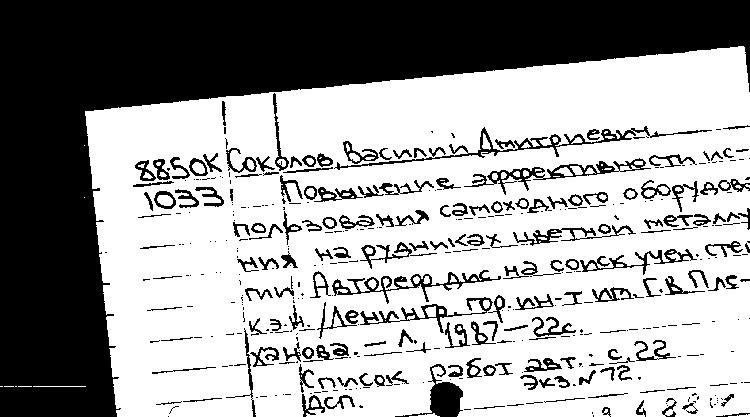 8850К Соколов, Василий Дмитриевич.
1033 Повышение эффективности ис-
пользования самоходного оборудова
ния на рудниках цветной металлу
гии: Автореф. дис. на соиск. учен. степ
к.э.н. /Ленингр. гор. ин-т им. Г.В. Пле-
ханова. — Л., 1987. — 22с.
Список работ авт.: с. 22
ДСП. Экз. N 72.